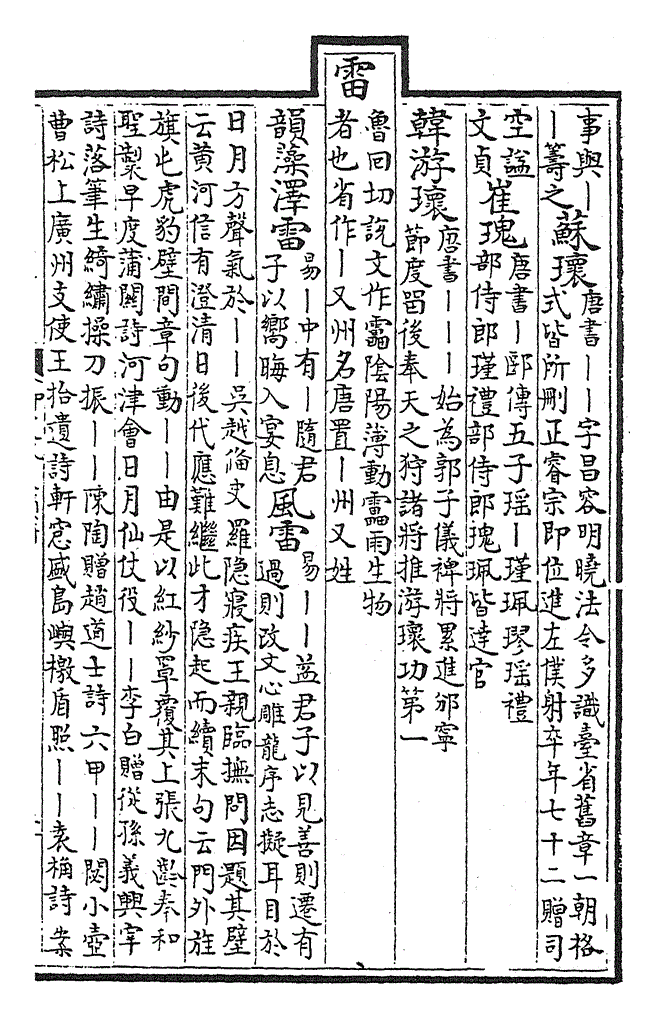 事輿丨
丨籌之
蘇瓌
唐書丨丨字昌容明曉法令多識臺省舊章一朝格
式皆所刪正睿宗即位進左僕射卒年七十二贈司
空諡
文貞
崔瑰
唐書丨郾傳五子瑶丨瑾珮璆瑶禮
部侍郎瑾禮部侍郎瑰珮皆達官
韓游瓌
唐書丨丨丨始為郭子儀裨將累進邠寧
節度留後奉天之狩諸將推游瓌功第一
雷
魯回切說文作靁陰陽薄動靁雨生物
者也省作丨又州名唐置丨州又姓
韻藻澤雷
易丨中有丨隨君
子以嚮晦入宴息
風雷
易丨丨益君子以見善則遷有
過則改文心雕龍序志擬耳目於
日月方聲氣於丨丨吳越備史羅隐寢疾王親臨撫問因題其壁
云黄河信有澄清日後代應難繼此才隐起而續末句云門外旌
旗屯虎豹壁間章句動丨丨由是以紅紗罩覆其上張九齡奉和
聖製早度蒲關詩河津會日月仙仗役丨丨李白贈從孫義興宰
詩落筆生綺繡操刀振丨丨陳陶贈趙道士詩六甲丨丨閟小壺
曹松上廣州支使王拾遺詩軒窓盛島嶼檄盾照丨丨袁桷詩